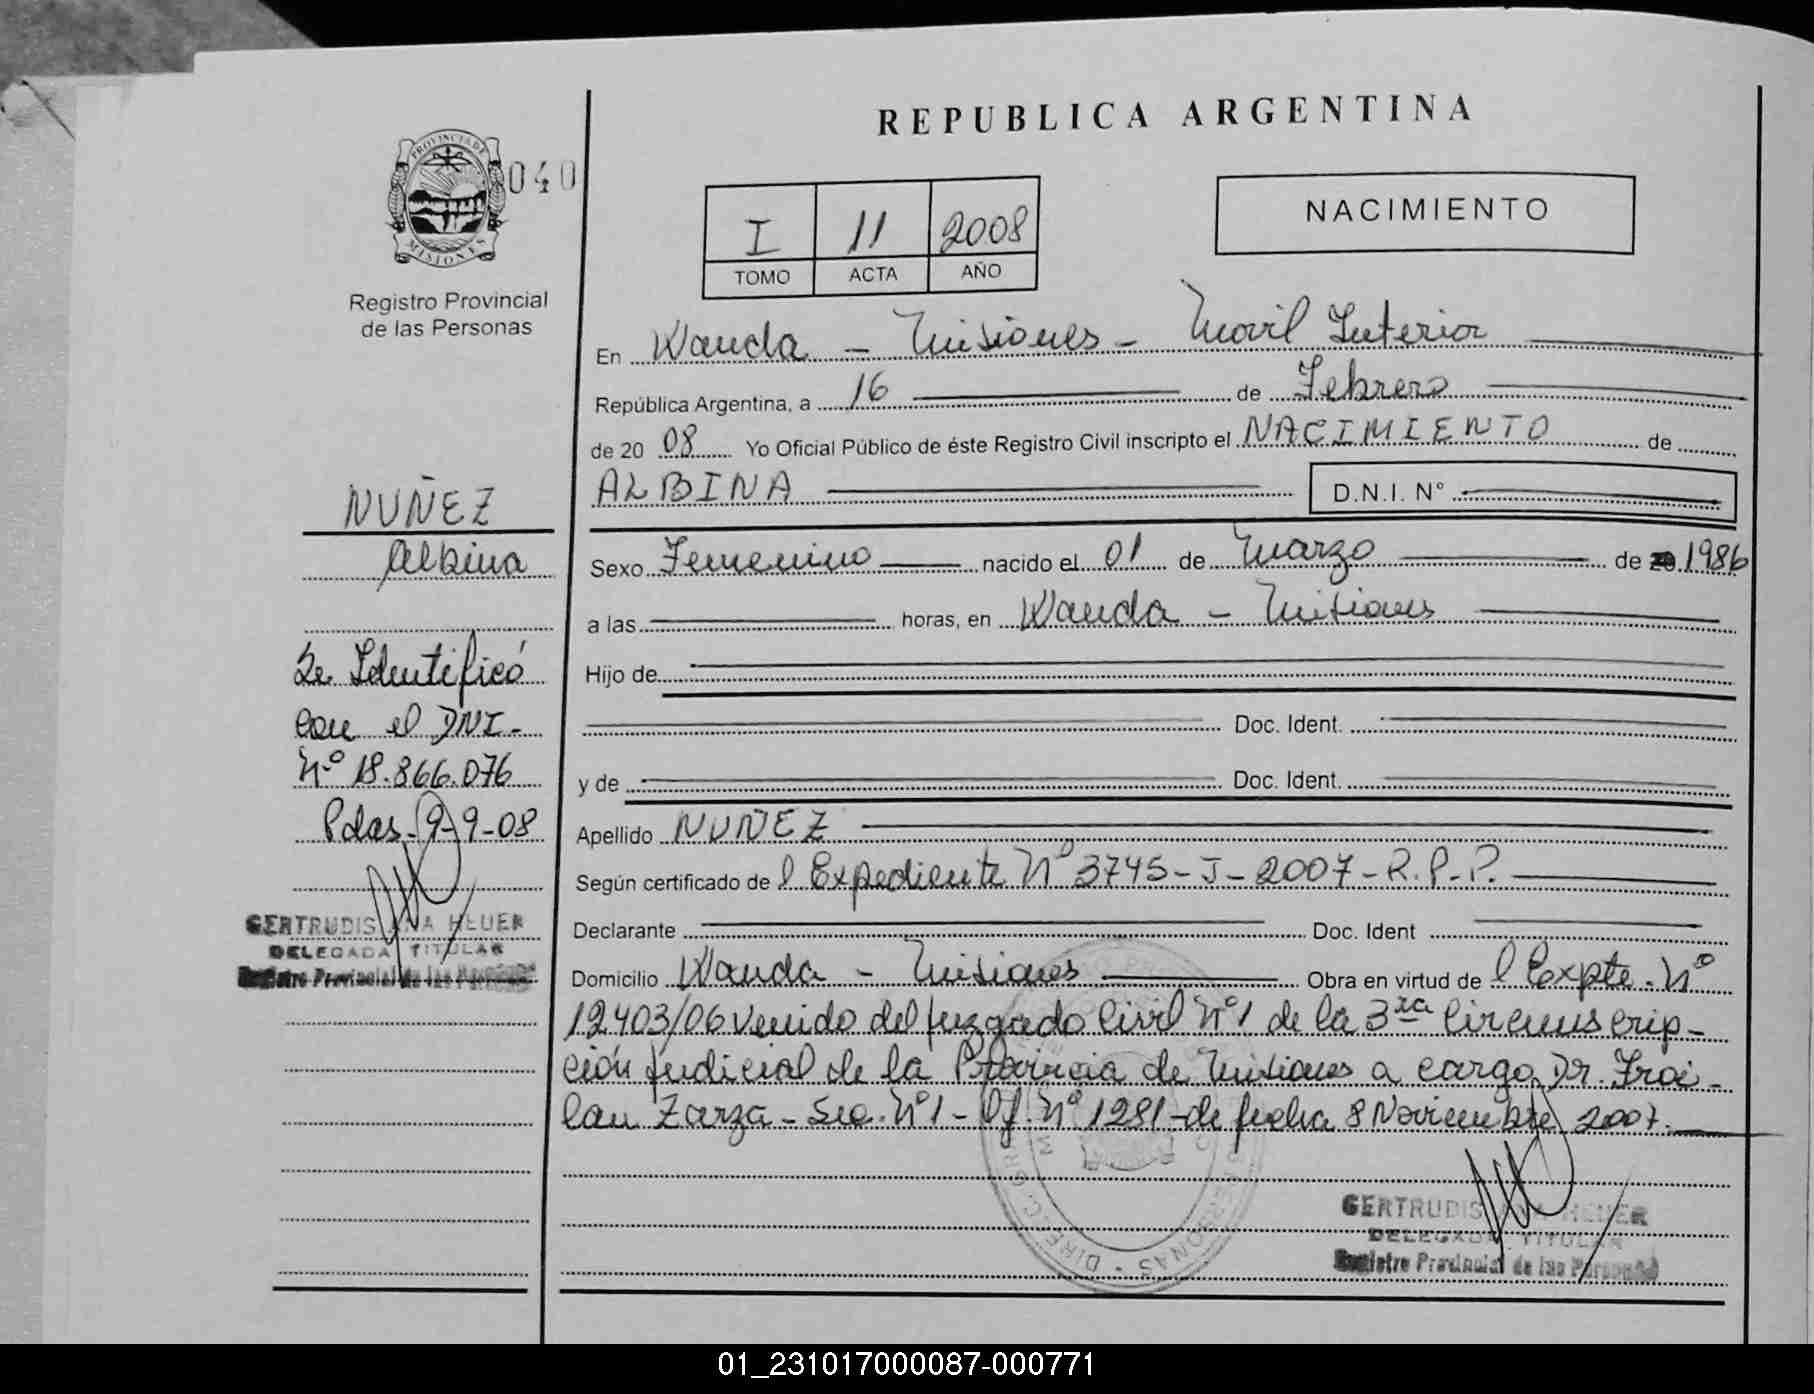 REPUBLICA ARGENTINA
PROVINCIA DE
MISIONES
040
Registro Provincial
de las Personas
I 11 2008
TOMO ACTA AÑO
NACIMIENTO
En Wanda - Misiones - Movil Interior
República Argentina, a 16 de Febrero
de 20 08 Yo Oficial Público de éste Registro Civil inscripto el NACIMIENTO de
ALBINA D.N.I. N°
NUÑEZ
Albina
Se Identificó
con el DNI-
Nº 18.866.076
Pdas-9-9-08
GERTRUDIS ANA HEUER
DELEGADA TITULAR
Registro Provincial de las Personas
Sexo Femenino nacido el 01 de Marzo de 20 1986
a las horas, en Wanda - Misiones
Hijo de
Doc. Ident.
y de Doc. Ident.
Apellido NUÑEZ
Según certificado de l Expediente Nº 3745-J-2007-R.P.P.
Declarante Doc. Ident
Domicilio Wanda - Misiones Obra en virtud de l Expte. Nº
12403/06 venido del juzgado Civil Nº1 de la 3ra Circunscrip-
ción judicial de la Provincia de Misiones a cargo Dr. Froi-
lan Zarza - Sec. Nº1 - Of. Nº 1281-de fecha 8 Noviembre 2007.
GERTRUDIS ANA HEUER
DELEGADA TITULAR
Registro Provincial de las Personas
01_231017000087-000771